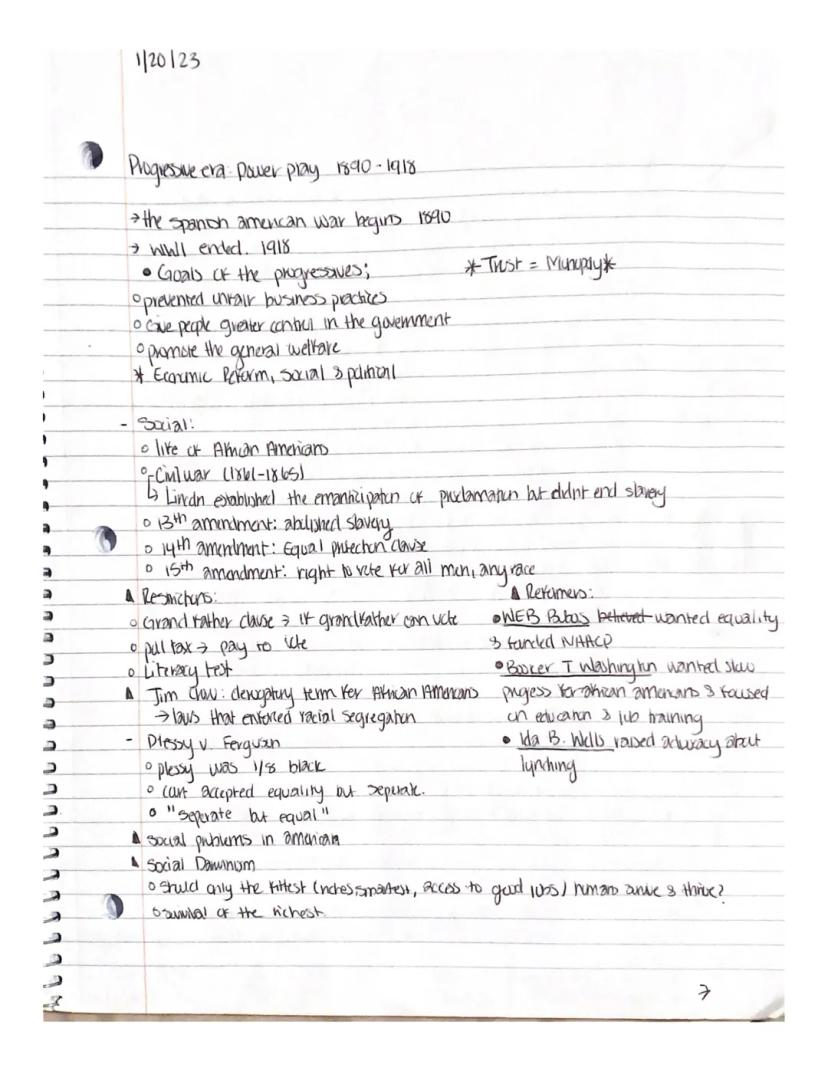 1/20/23
Progressive era: Power play 1890-1918
→ the spanish american war begins 1890
→ WWI ended. 1918
• Goals of the progressives;
* Trust = Monopoly *
○ prevented unfair business practices
○ Give people greater control in the government
○ promote the general welfare
* Economic Reform, Social & political
- Social:
○ life of African Americans
○ Civil war (1861-1865)
↳ Lincoln established the emanticipation of proclamation but didnt end slavery
○ 13th amendment: abolished slavery
○ 14th amendment: Equal protection clause
○ 15th amendment: right to vote for all men, any race
▲ Restrictions:
○ Grand father clause → if grandfather can vote
○ poll tax → pay to vote
○ Literacy test
▲ Jim Crow: derogatory term for African Americans
→ laws that enforced racial segregation
- Plessy v. Ferguson
○ plessy was 1/8 black
○ court accepted equality but seperate.
○ "seperate but equal"
▲ Reformers:
• WEB Dubois believed wanted equality
& funded NAACP
• Booker T Washington wanted slow
progress for african americans & focused
on education & job training
• Ida B. Wells raised advocacy about
lynching
▲ social problems in american
▲ Social Darwinism
○ should only the fittest (riches smartest, access to good jobs) humans survive & thrive?
○ survival of the richest
→